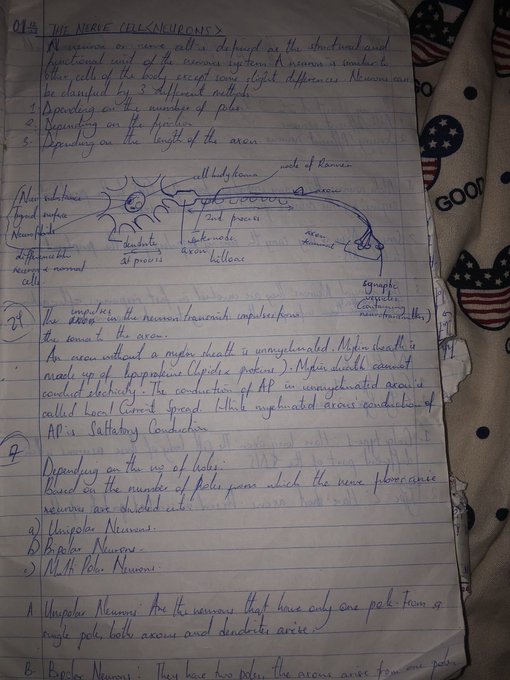 THE NERVE CELL <NEURONS>
A neuron or nerve cell is defined as the structural and
functional unit of the nervous system. A neuron is similar to
other cells of the body except some slight differences. Neurons can
be classified by 3 different methods.
1. Depending on the number of poles.
2. Depending on the function
3. Depending on the length of the axon
cell body/soma
node of Ranvier
axon
substance
2nd process
dendrite
1st process
internode
axon
hillock
axon
terminal
neurons & normal
cells
synaptic
vesicles
(containing
neurotransmitters)
The impulses in the neuron transmit impulses from
the soma to the axon.
An axon without a myelin sheath is unmyelinated. Myelin sheath is
made up of lipoproteins (lipids & proteins). Myelin sheath cannot
conduct electricity. The conduction of AP in unmyelinated axon is
called Local Current Spread. While myelinated axons conduction of
AP is Saltatory Conduction
Depending on the no of Poles:
Based on the number of Poles from which the nerve fibres arise
neurons are divided into
a) Unipolar Neurons.
b) Bipolar Neurons.
c) Multi Polar Neurons
A Unipolar Neurons: Are the neurons that have only one pole. From a
single pole, both axons and dendrites arise.
B. Bipolar Neurons: They have two poles, the axons arise from one pole
GOOD
GOOD